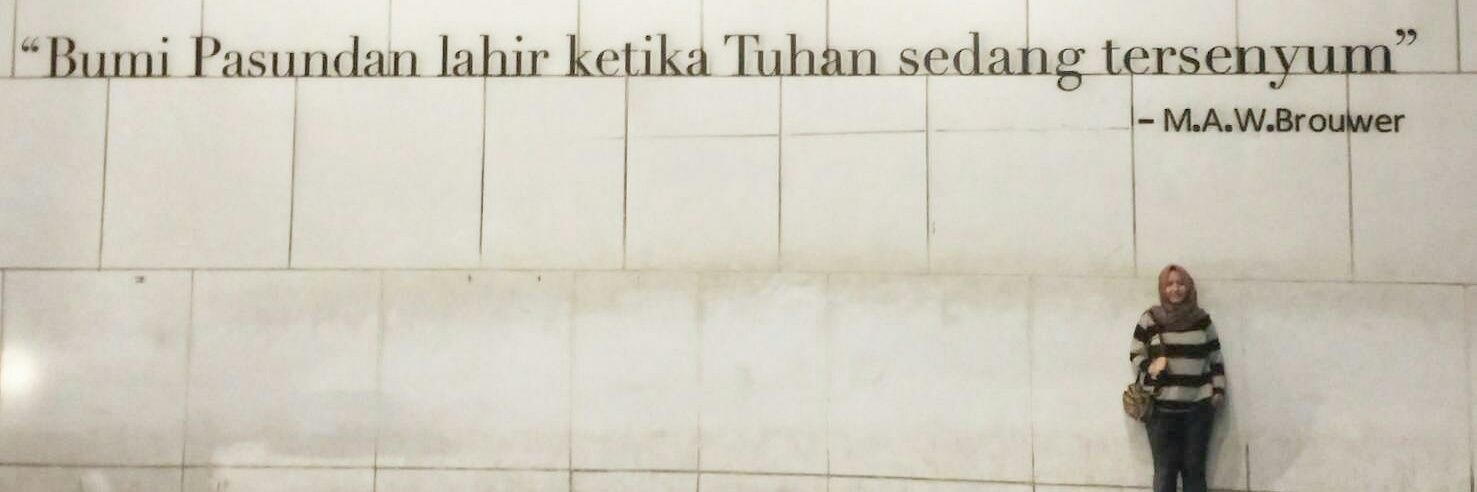 “Bumi Pasundan lahir ketika Tuhan sedang tersenyum”
– M.A.W.Brouwer